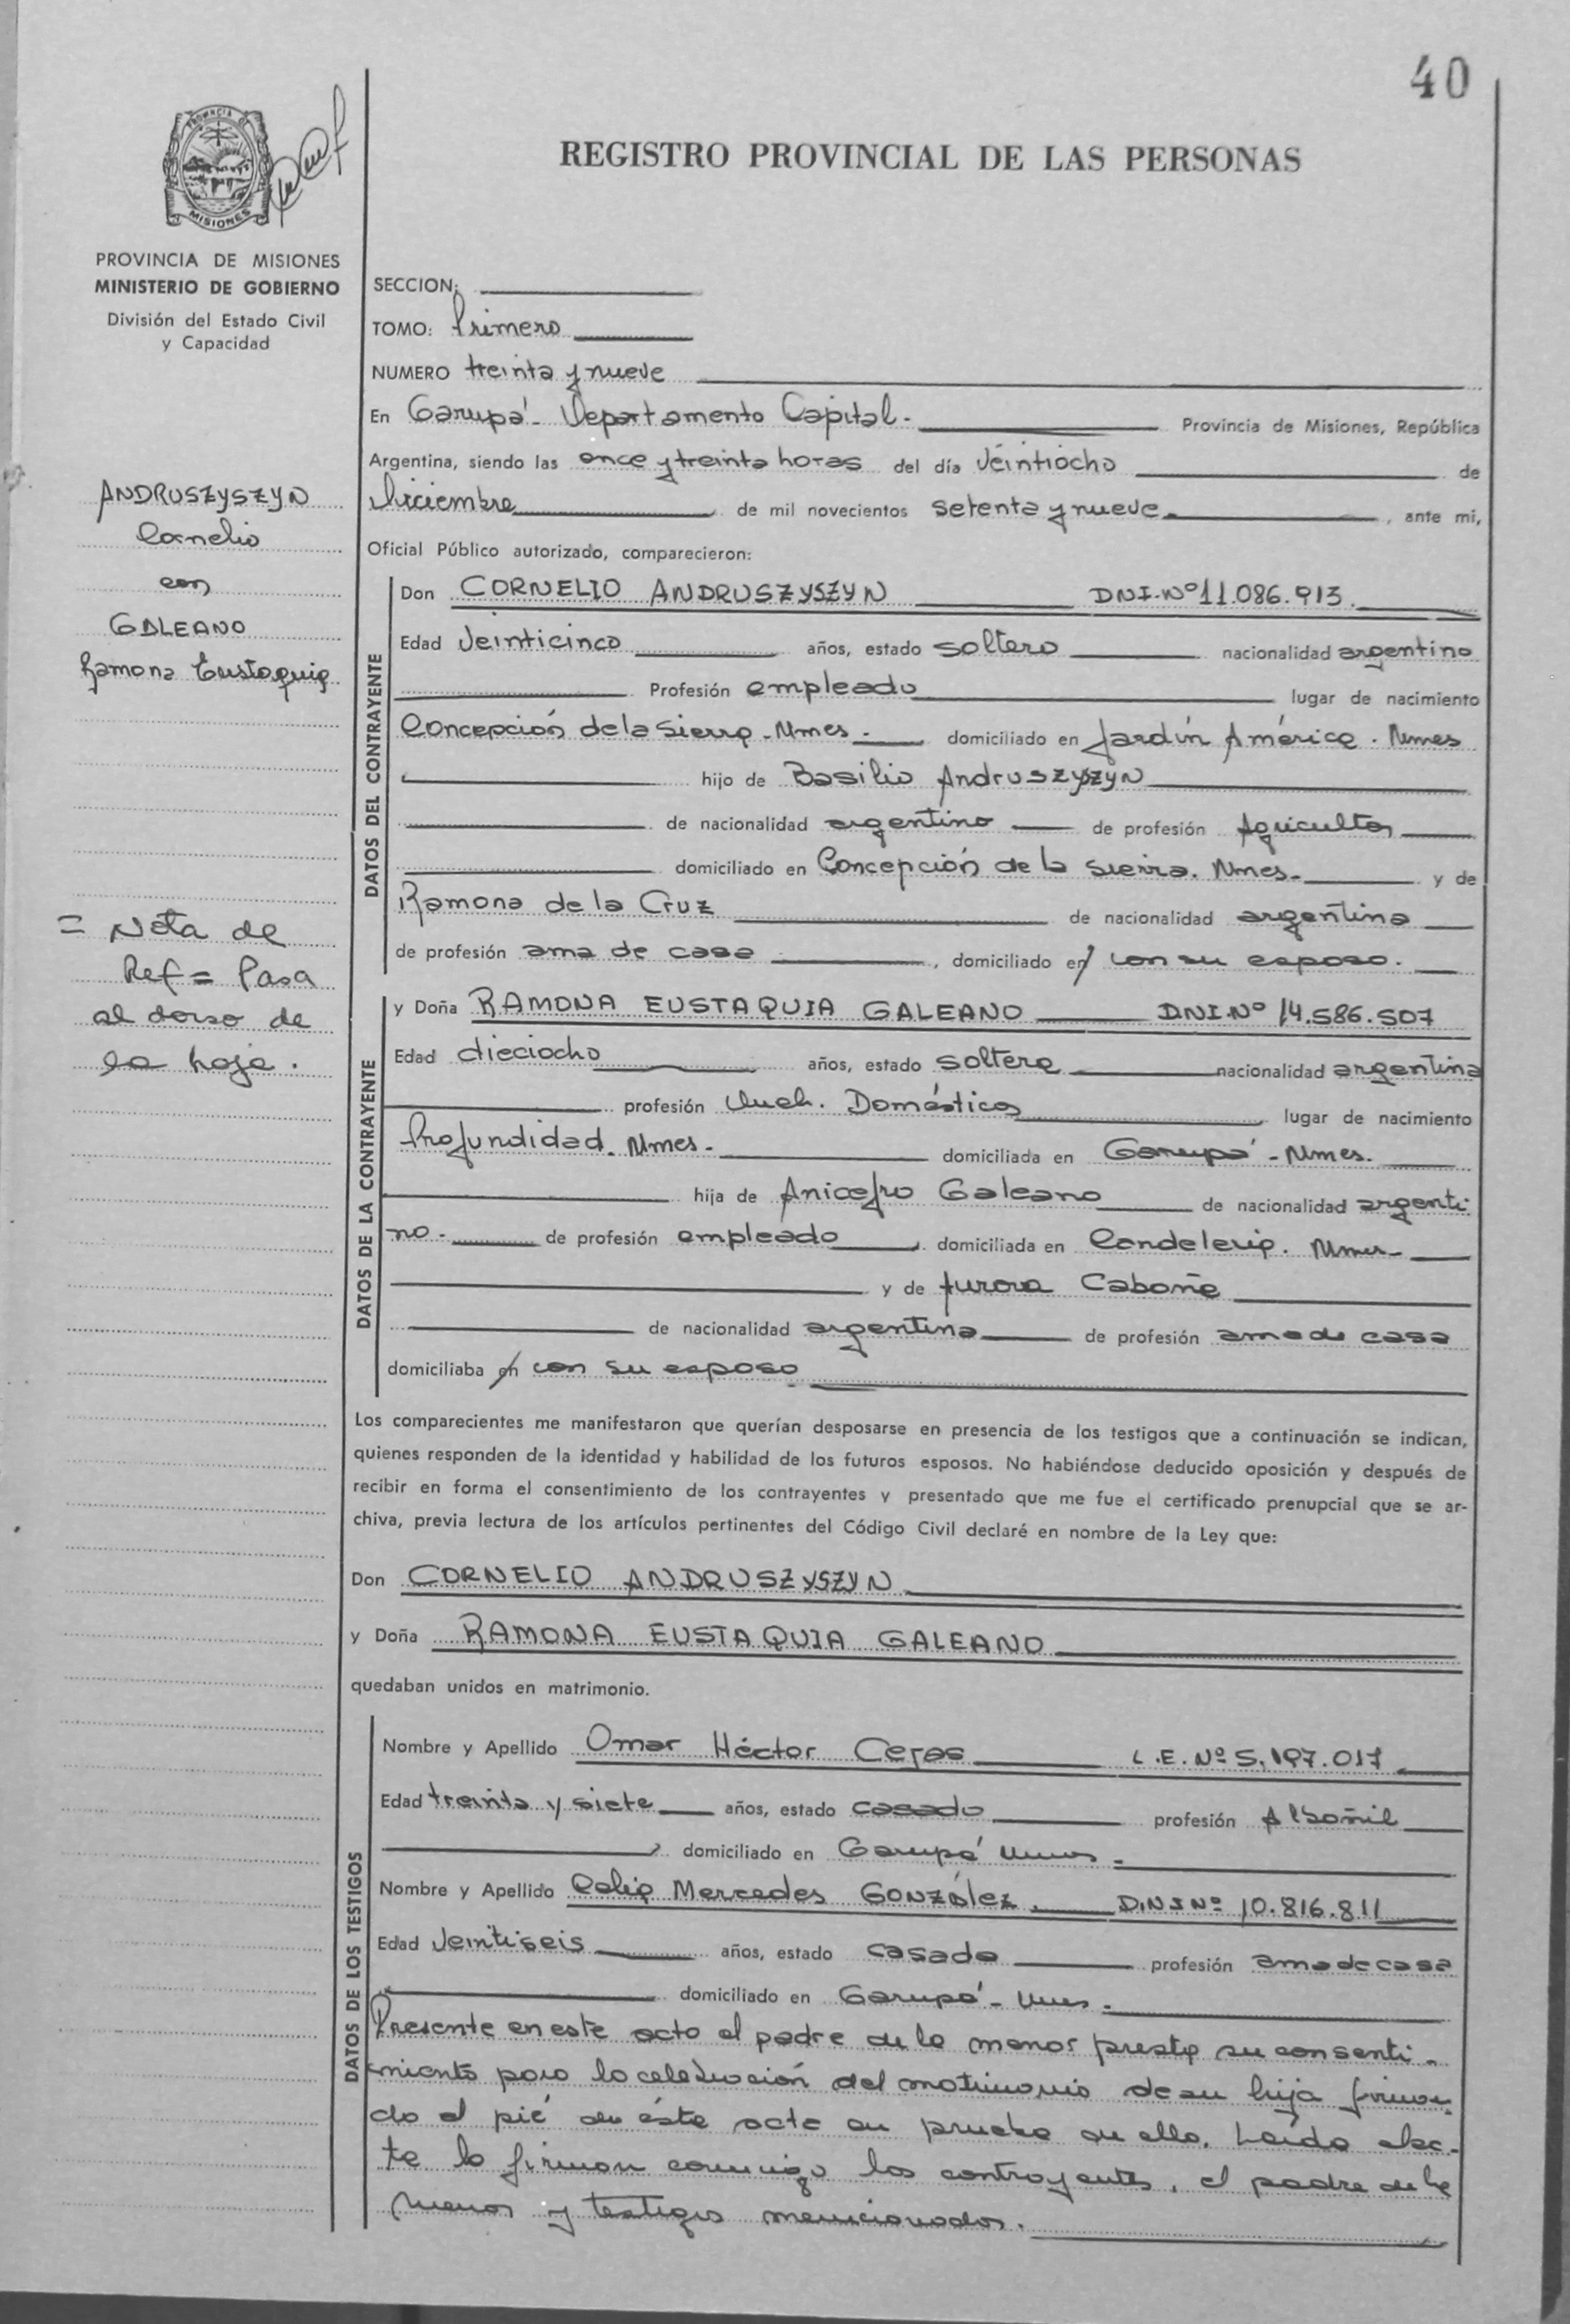 40
PROVINCIA DE
MISIONES
REGISTRO PROVINCIAL DE LAS PERSONAS
PROVINCIA DE MISIONES
MINISTERIO DE GOBIERNO
División del Estado Civil
y Capacidad
ANDRUSZYSZYN
Cornelio
con
GALEANO
Ramona Eustaquia
= Nota de
Ref = Pasa
al dorso de
la hoja.
SECCION:
TOMO: Primero
NUMERO treinta y nueve
En Garupá - Departamento Capital - Provincia de Misiones, República
Argentina, siendo las once y treinta horas del día Veintiocho de
Diciembre de mil novecientos setenta y nueve , ante mi,
Oficial Público autorizado, comparecieron:
DATOS DEL CONTRAYENTE
Don CORNELIO ANDRUSZYSZYN DNI. Nº 11.086.913.
Edad Veinticinco años, estado soltero nacionalidad argentino
Profesión empleado lugar de nacimiento
Concepción de la Sierra - Mnes - domiciliado en Jardín América. Mnes
hijo de Basilio Andruszyszyn
de nacionalidad argentino de profesión Agricultor
domiciliado en Concepción de la Sierra. Mnes - y de
Ramona de la Cruz de nacionalidad argentina
de profesión ama de casa , domiciliado en con su esposo.
DATOS DE LA CONTRAYENTE
y Doña RAMONA EUSTAQUIA GALEANO DNI. Nº 14.586.507
Edad dieciocho años, estado soltera nacionalidad argentina
profesión Queh. Domésticos lugar de nacimiento
Profundidad. Mnes - domiciliada en Garupá - Mnes.
hija de Anicefro Galeano de nacionalidad argenti
no - de profesión empleado domiciliada en Candelaria. Mnes -
y de Aurora Cabañe
de nacionalidad argentina de profesión ama de casa
domiciliaba en con su esposo
Los comparecientes me manifestaron que querían desposarse en presencia de los testigos que a continuación se indican,
quienes responden de la identidad y habilidad de los futuros esposos. No habiéndose deducido oposición y después de
recibir en forma el consentimiento de los contrayentes y presentado que me fue el certificado prenupcial que se ar-
chiva, previa lectura de los artículos pertinentes del Código Civil declaré en nombre de la Ley que:
Don CORNELIO ANDRUSZYSZYN
y Doña RAMONA EUSTAQUIA GALEANO
quedaban unidos en matrimonio.
DATOS DE LOS TESTIGOS
Nombre y Apellido Omar Héctor L.E. Nº 5.197.017
Edad treinta y siete años, estado casado profesión Albañil
domiciliado en Garupá Mnes -
Nombre y Apellido Mercedes GONZÁLEZ DNI Nº 10.816.811
Edad Veintiseis años, estado casada profesión ama de casa
domiciliado en Garupá - Mnes -
Presente en este acto el padre de la menor presta su consenti-
miento para la celebración del matrimonio de su hija firman
do al pié de ésta acta en prueba de ello. Leída el ac-
ta la firman conmigo los contrayentes, el padre de la
menor y testigos mencionados.